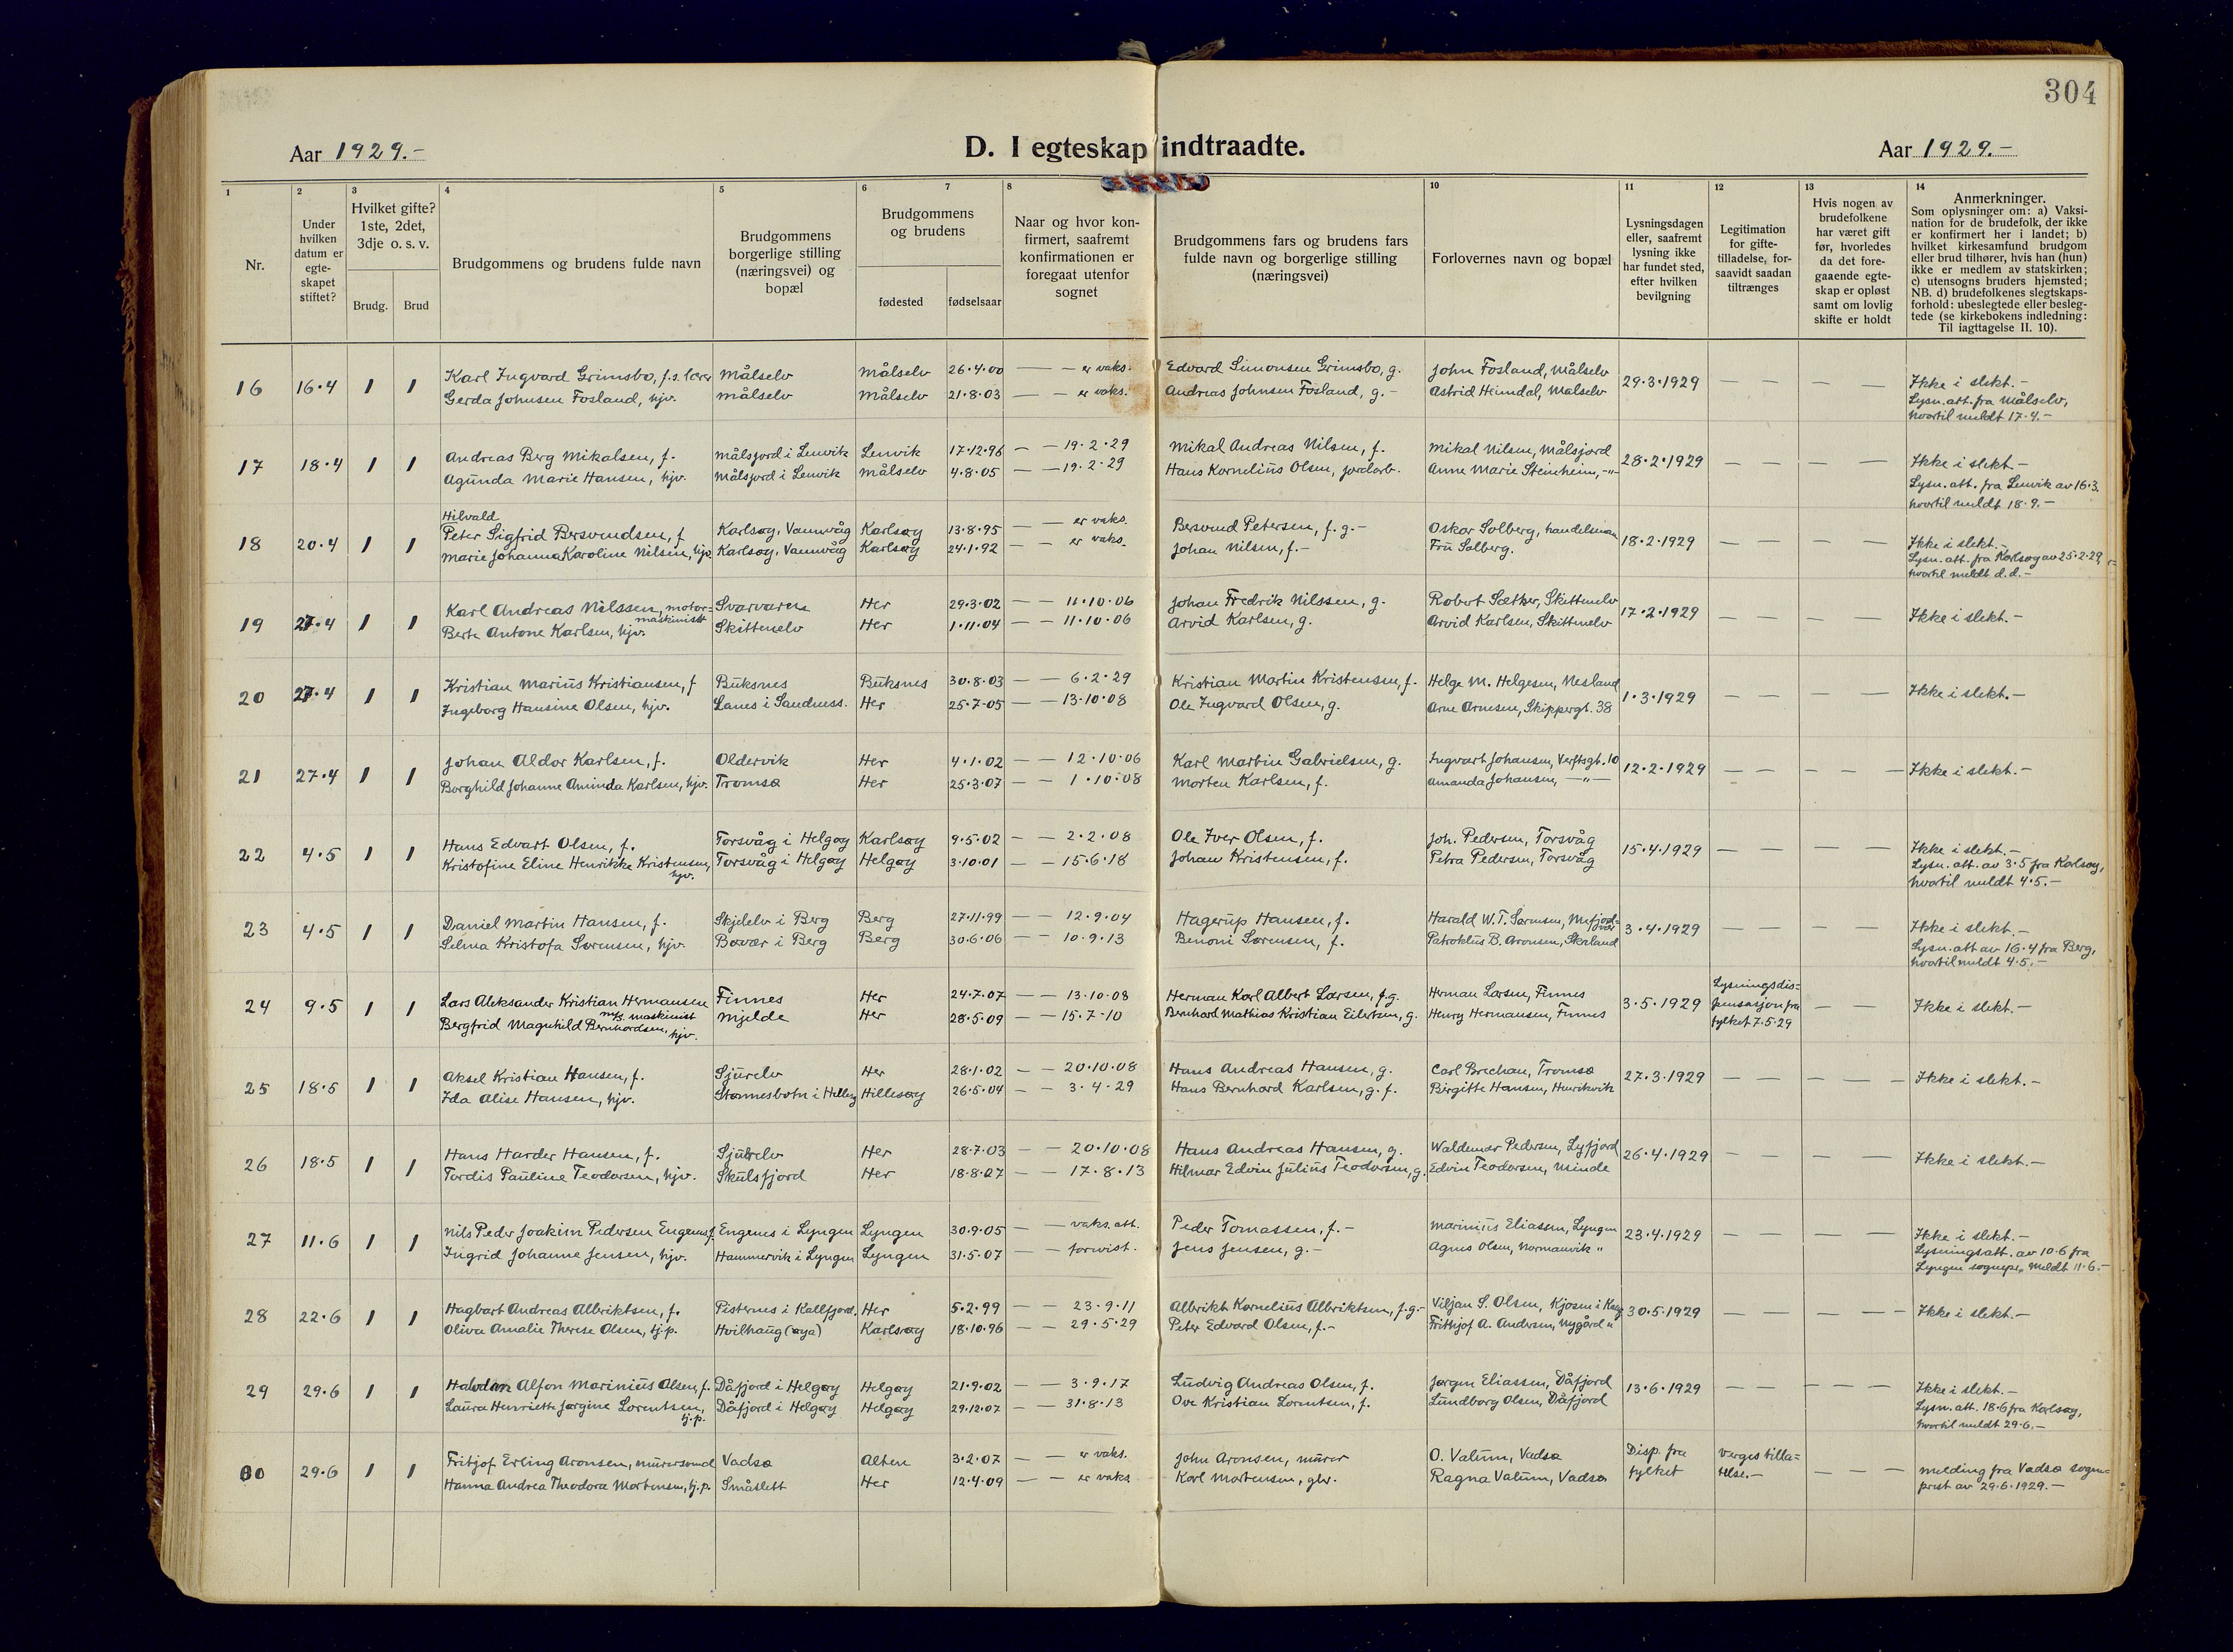 304
Aar 1929.-
D. I egteskap indtraadte.
Aar 1929.-
1 2 3 4 5 6 7 8 10 11 12 13 14
Nr.
Under hvilken datum er egte-skapet stiftet?
Hvilket gifte? 1ste, 2det, 3dje o. s. v.
Brudg. Brud
Brudgommens og brudens fulde navn
Brudgommens borgerlige stilling (næringsvei) og bopæl
Brudgommens og brudens
fødested fødselsaar
Naar og hvor kon-firmert, saafremt konfirmationen er foregaat utenfor sognet
Brudgommens fars og brudens fars fulde navn og borgerlige stilling (næringsvei)
Forlovernes navn og bopæl
Lysningsdagen eller, saafremt lysning ikke har fundet sted, efter hvilken bevilgning
Legitimation for gifte-tilladelse, for-saavidt saadan tiltrænges
Hvis nogen av brudefolkene har været gift før, hvorledes da det fore-gaaende egte-skap er opløst samt om lovlig skifte er holdt
Anmerkninger.
Som oplysninger om: a) Vaksi-nation for de brudefolk, der ikke er konfirmert her i landet; b) hvilket kirkesamfund brudgom eller brud tilhører, hvis han (hun) ikke er medlem av statskirken; c) utensogns bruders hjemsted; NB. d) brudefolkenes slegtskaps-forhold: ubeslegtede eller besleg-tede (se kirkebokens indledning: Til iagttagelse II. 10).
16 16.4 1 1 Karl Ingvard Grimsbo, f.s. lærer Målselv Målselv 26.4.00 — — er vaks. Edvard Simonsen Grimsbo, g. John Fosland, Målselv 29.3.1929 — — — — Ikke i slekt.-
Gerda Johnsen Fosland, hjv. Målselv Målselv 21.8.03 — — er vaks. Andreas Johnsen Fosland, g.- Astrid Heimdal, Målselv Lysn. att. fra Målselv,
hvortil meldt 17.4.-
17 18.4 1 1 Andreas Berg Mikalsen, f. Målsjord i Lenvik Lenvik 17.12.96 — — 19.2.29 Mikal Andreas Nilsen, f. Mikal Nilsen, Målsjord 28.2.1929 — — — — Ikke i slekt.-
Agunda Marie Hansen, hjv. Målsjord i Lenvik Målselv 4.8.05 — — 19.2.29 Hans Kornelius Olsen, jordarb. Anne Marie Steinheim, -"- Lysn. att. fra Lenvik av 16.3.
hvortil meldt 18.9.-
Hilvald
18 20.4 1 1 Peter Sigfrid Bersvendsen, f Karlsøy, Vannvåg Karlsøy 13.8.95 — — er vaks. Bersvend Petersen, f.g.- Oskar Solberg, handelsman 18.2.1929 — — — — Ikke i slekt.-
Marie Johanna Karoline Nilsen, hjv. Karlsøy, Vannvåg Karlsøy 24.1.92 — — er vaks. Johan Nilsen, f.- Fru Solberg. Lysn. att. fra Karlsøy av 25.2.29,
hvortil meldt d.d.-
19 27.4 1 1 Karl Andreas Nilssen, motor-maskinist Svarvaren Her 29.3.02 — — 11.10.06 Johan Fredrik Nilssen, g. Robert Sæther, Skittenelv 17.2.1929 — — — — Ikke i slekt.-
Berte Antone Karlsen, hjv. Skittenelv Her 1.11.04 — — 11.10.06 Arvid Karlsen, g. Arvid Karlsen, Skittenelv
20 27.4 1 1 Kristian Marius Kristiansen, f Buksnes Buksnes 30.8.03 — — 6.2.29 Kristian Martin Kristensen, f. Helge M. Helgesen, Nesland 1.3.1929 — — — — Ikke i slekt.-
Ingeborg Hansine Olsen, hjv. Lanes i Sandness. Her 25.7.05 — — 13.10.08 Ole Ingvard Olsen, g. Arne Arnesen, Skippergt. 38
21 27.4 1 1 Johan Aldor Karlsen, f. Oldervik Her 4.1.02 — — 12.10.06 Karl Martin Gabrielsen, g. Ingvart Johansen, Verftsgt. 10 12.2.1929 — — — — Ikke i slekt.-
Borghild Johanne Aminda Karlsen, hjv. Tromsø Her 25.3.07 — — 1.10.08 Morten Karlsen, f. Amanda Johansen, —"—
22 4.5 1 1 Hans Edvart Olsen, f. Torsvåg i Helgøy Karlsøy 9.5.02 — — 2.2.08 Ole Iver Olsen, f. Joh. Pedersen, Torsvåg 15.4.1929 — — — — Ikke i slekt.-
Kristofine Eline Henrikke Kristensen, hjv. Torsvåg i Helgøy Helgøy 3.10.01 — — 15.6.18 Johan Kristensen, f. Petra Pedersen, Torsvåg Lysn. att. av 3.5 fra Karlsøy,
hvortil meldt 4.5.-
23 4.5 1 1 Daniel Martin Hansen, f. Skjelelv i Berg Berg 27.11.99 — — 12.9.04 Hagerup Hansen, f. Harald W.T. Sørensen, Mefjord-vær 3.4.1929 — — — — Ikke i slekt.-
Selma Kristofa Sørensen, hjv. Bøvær i Berg Berg 30.6.06 — — 10.9.13 Benoni Sørensen, f. Patroklus B. Aronsen, Skaland Lysn. att av 16.4 fra Berg,
hvortil meldt 4.5.-
24 9.5 1 1 Lars Aleksander Kristian Hermansen m/s. maskinist Finnes Her 24.7.07 — — 13.10.08 Herman Karl Albert Larsen, f.g. Herman Larsen, Finnes 3.5.1929 Lysningsdis-pensasjon fra fylket 7.5.29 — — Ikke i slekt.-
Bergfrid Magnhild Bernhardsen, hjv. Mjelde Her 28.5.09 — — 15.7.10 Bernhard Mathias Kristian Eilertsen, g. Henry Hermansen, Finnes
25 18.5 1 1 Aksel Kristian Hansen, f. Sjurelv Her 28.1.02 — — 20.10.08 Hans Andreas Hansen, g. Carl Brechan, Tromsø 27.3.1929 — — — — Ikke i slekt.-
Ida Alise Hansen, hjv. Stønnesbotn i Hillesøy Hillesøy 26.5.04 — — 3.4.29 Hans Bernhard Karlsen, g.f. Birgitte Hansen, Henrikvik
26 18.5 1 1 Hans Harder Hansen, f. Sjurelv Her 28.7.03 — — 20.10.08 Hans Andreas Hansen, g. Waldemar Pedersen, Lyfjord 26.4.1929 — — — — Ikke i slekt.-
Tordis Pauline Teodorsen, hjv. Skulsfjord Her 18.8.07 — — 17.8.13 Hilmar Edvin Julius Teodorsen, g. Edvin Teodorsen, Minde
27 11.6 1 1 Nils Peder Joakim Pedersen Engenes, f. Engenes i Lyngen Lyngen 30.9.05 — — vaks. att. Peder Tomassen, f.- Marinius Eliassen, Lyngen 23.4.1929 — — — — Ikke i slekt.-
Ingrid Johanne Jensen, hjv. Hammervik i Lyngen Lyngen 31.5.07 — — forvist. Jens Jensen, g.- Agnes Olsen, Normannvik " Lysningsatt. av 10.6 fra
Lyngen sognepr., meldt 11.6.-
28 22.6 1 1 Hagbart Andreas Albriktsen, f. Pisternes i Kallfjord. Her 5.2.99 — — 23.9.11 Albrikt Kornelius Albriktsen, f.g.- Viljan S. Olsen, Kjosen i 30.5.1929 — — — — Ikke i slekt.-
Oliva Amalie Therese Olsen, tj.p. Hvilhaug (øya) Karlsøy 18.10.96 — — 29.5.29 Peter Edvard Olsen, f.- Frithjof A. Andersen, Nygård "
29 29.6 1 1 Halvdan Alfon Marinius Olsen, f. Dåfjord i Helgøy Helgøy 21.9.02 — — 3.9.17 Ludvig Andreas Olsen, f. Jørgen Eliassen, Dåfjord 13.6.1929 — — — — Ikke i slekt.-
Laura Henriette Jørgine Lorentsen, tj.p. Dåfjord i Helgøy Helgøy 29.12.07 — — 31.8.13 Ove Kristian Lorentsen, f. Lundborg Olsen, Dåfjord Lysn. att. 18.6 fra Karlsøy,
hvortil meldt 29.6.-
30 29.6 1 1 Fritjof Erling Aronsen, murersvend Vadsø Alten 3.2.07 — — er vaks. John Aronsen, murer O. Valum, Vadsø Disp. fra fylket Verges tilla-telse.- — — — melding fra Vadsø sogne-
Hanna Andrea Theodora Mortensen, tj.p. Småslett Her 12.4.09 — — er vaks Karl Mortensen, gbr. Ragna Valum, Vadsø prest av 29.6.1929.-